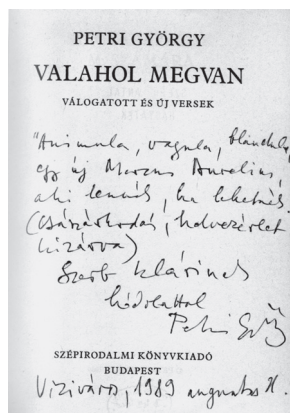 PETRI GYÖRGY
VALAHOL MEGVAN
VÁLOGATOTT ÉS ÚJ VERSEK
"Animula, vagula, blandula,
egy új Marcus Aurelius,
aki lennék, ha lehetnék.
(császárkodás, hadvezérlet
kizárva)
Szerb Klárinak
hódolattal
Petri Gy
SZÉPIRODALMI KÖNYVKIADÓ
BUDAPEST
Víziváros, 1989 augusztus